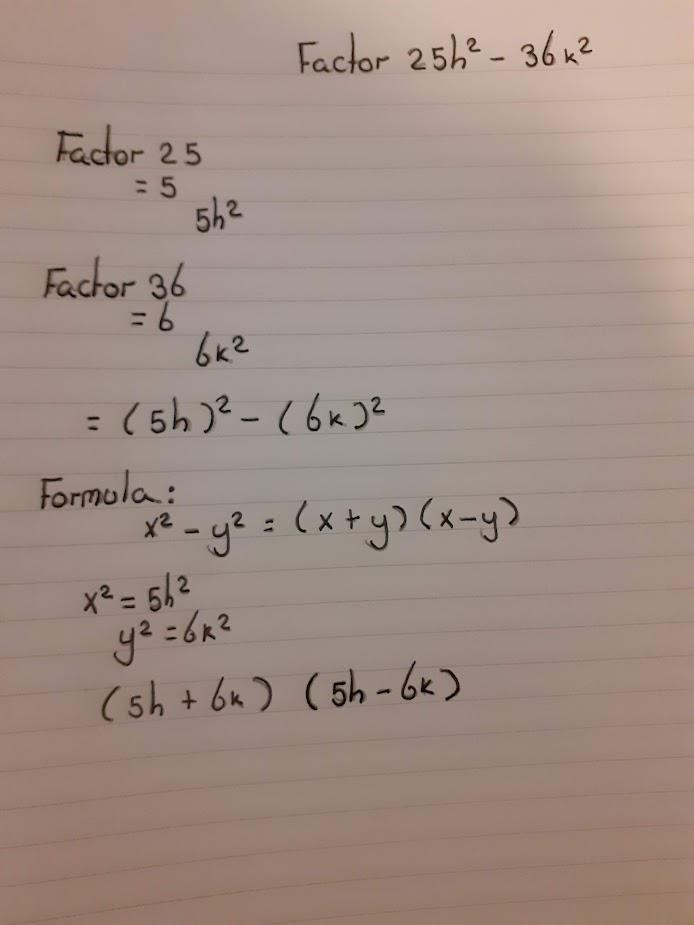 Factor 25h² - 36k²
Factor 25
= 5
5h²
Factor 36
= 6
6k²
= (5h)² - (6k)²
Formula:
x² - y² = (x+y)(x-y)
x² = 5h²
y² = 6k²
(5h + 6k) (5h - 6k)